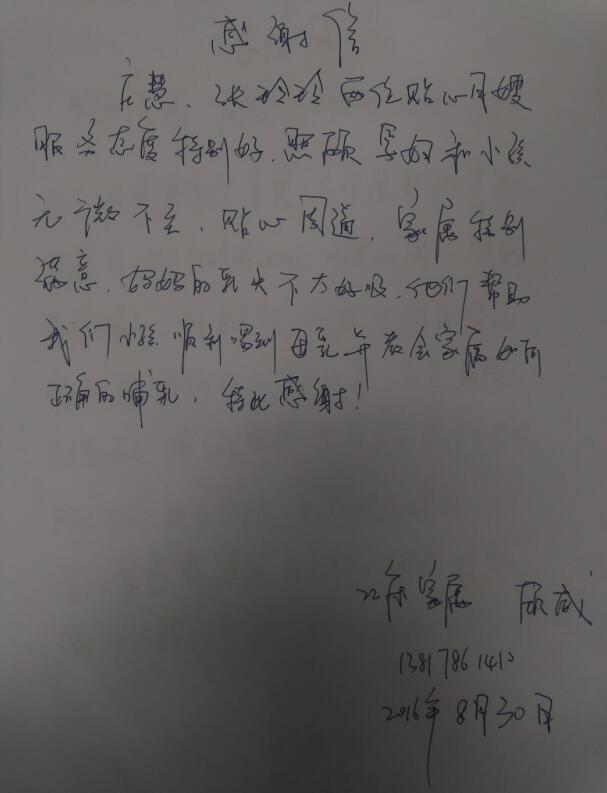 感谢信
庄慧、张玲玲两位贴心月嫂
服务态度特别好,照顾孕妇和小孩
无微不至,贴心周道,家属特别
满意,妈妈的乳头不大好吸,他们帮助
我们小孩顺利喝到母乳并教会家属如何
正确的哺乳,特此感谢!
22床家属 威
13817861410
2016年8月30日